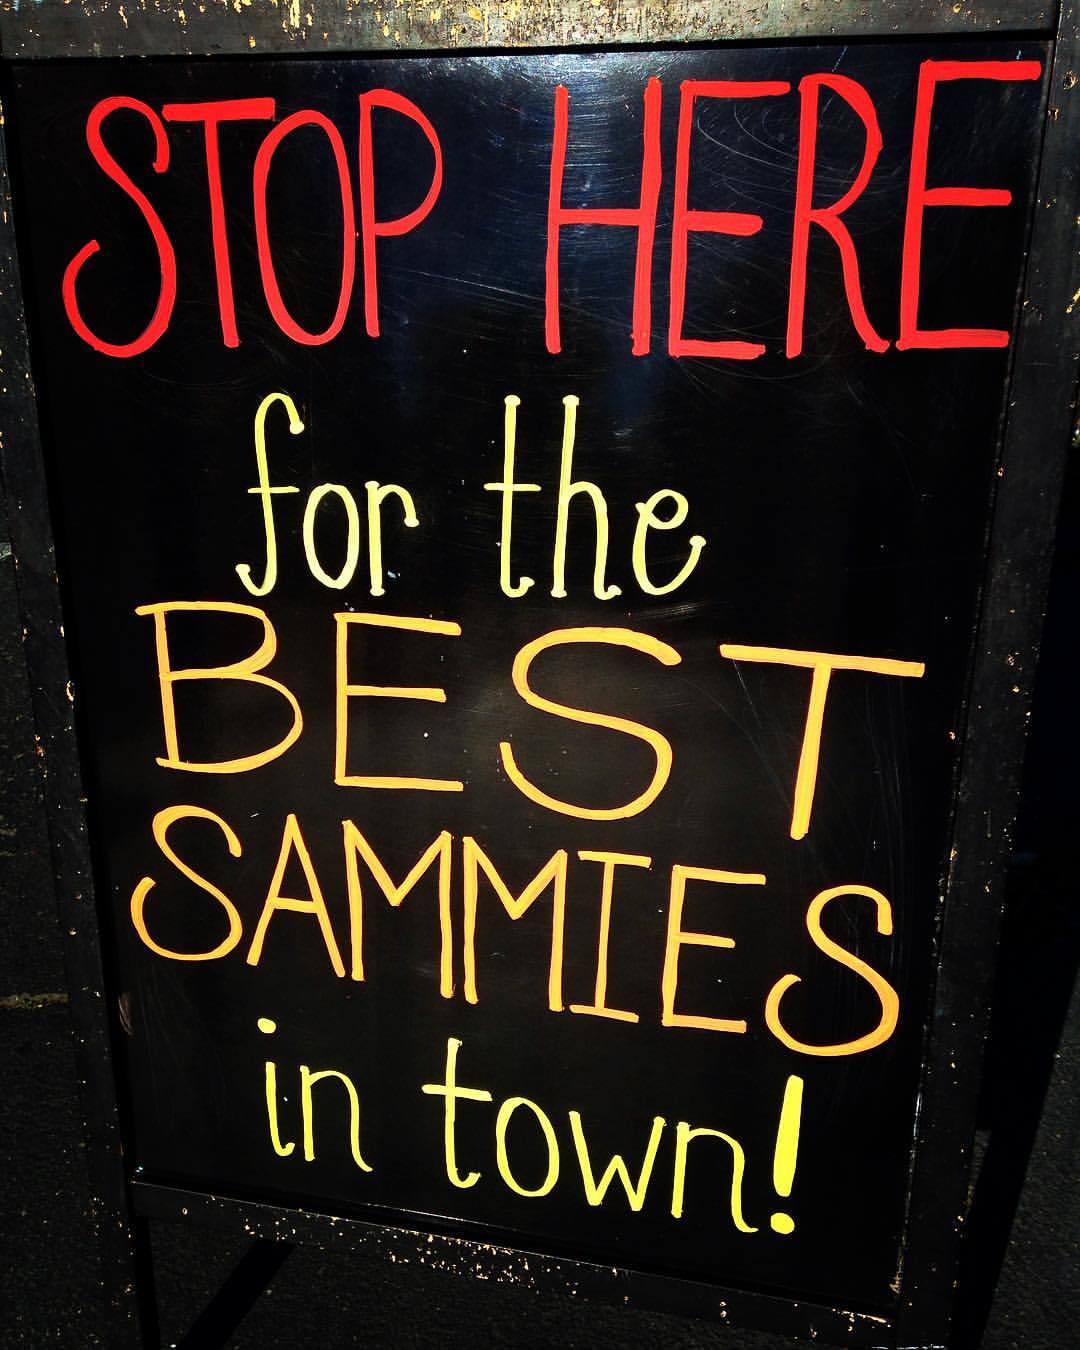 STOP HERE
for the
BEST
SAMMIES
in town!